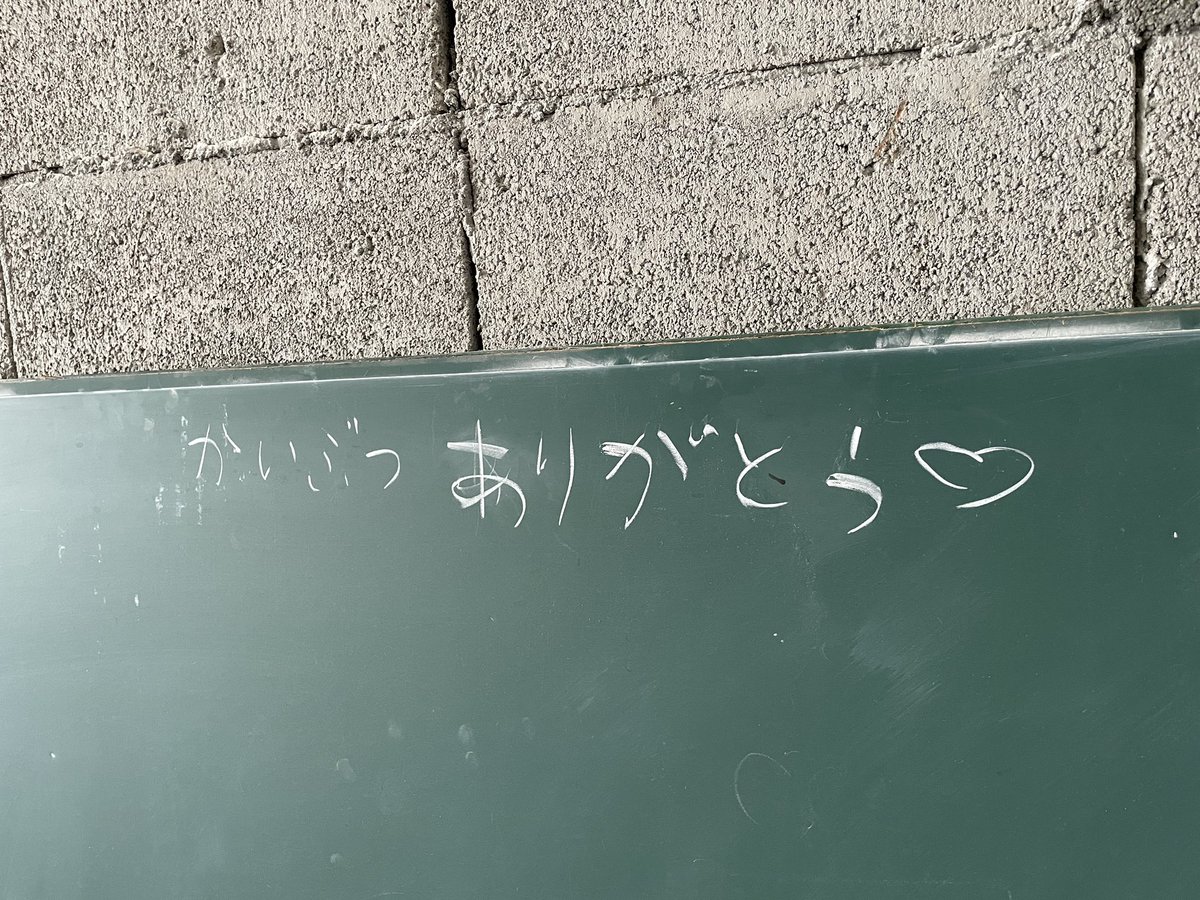 かいぶつ ありがとう♡